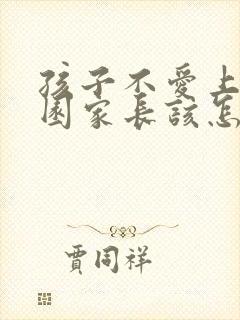 孩子不愛上
園家長該怎
賈同祥